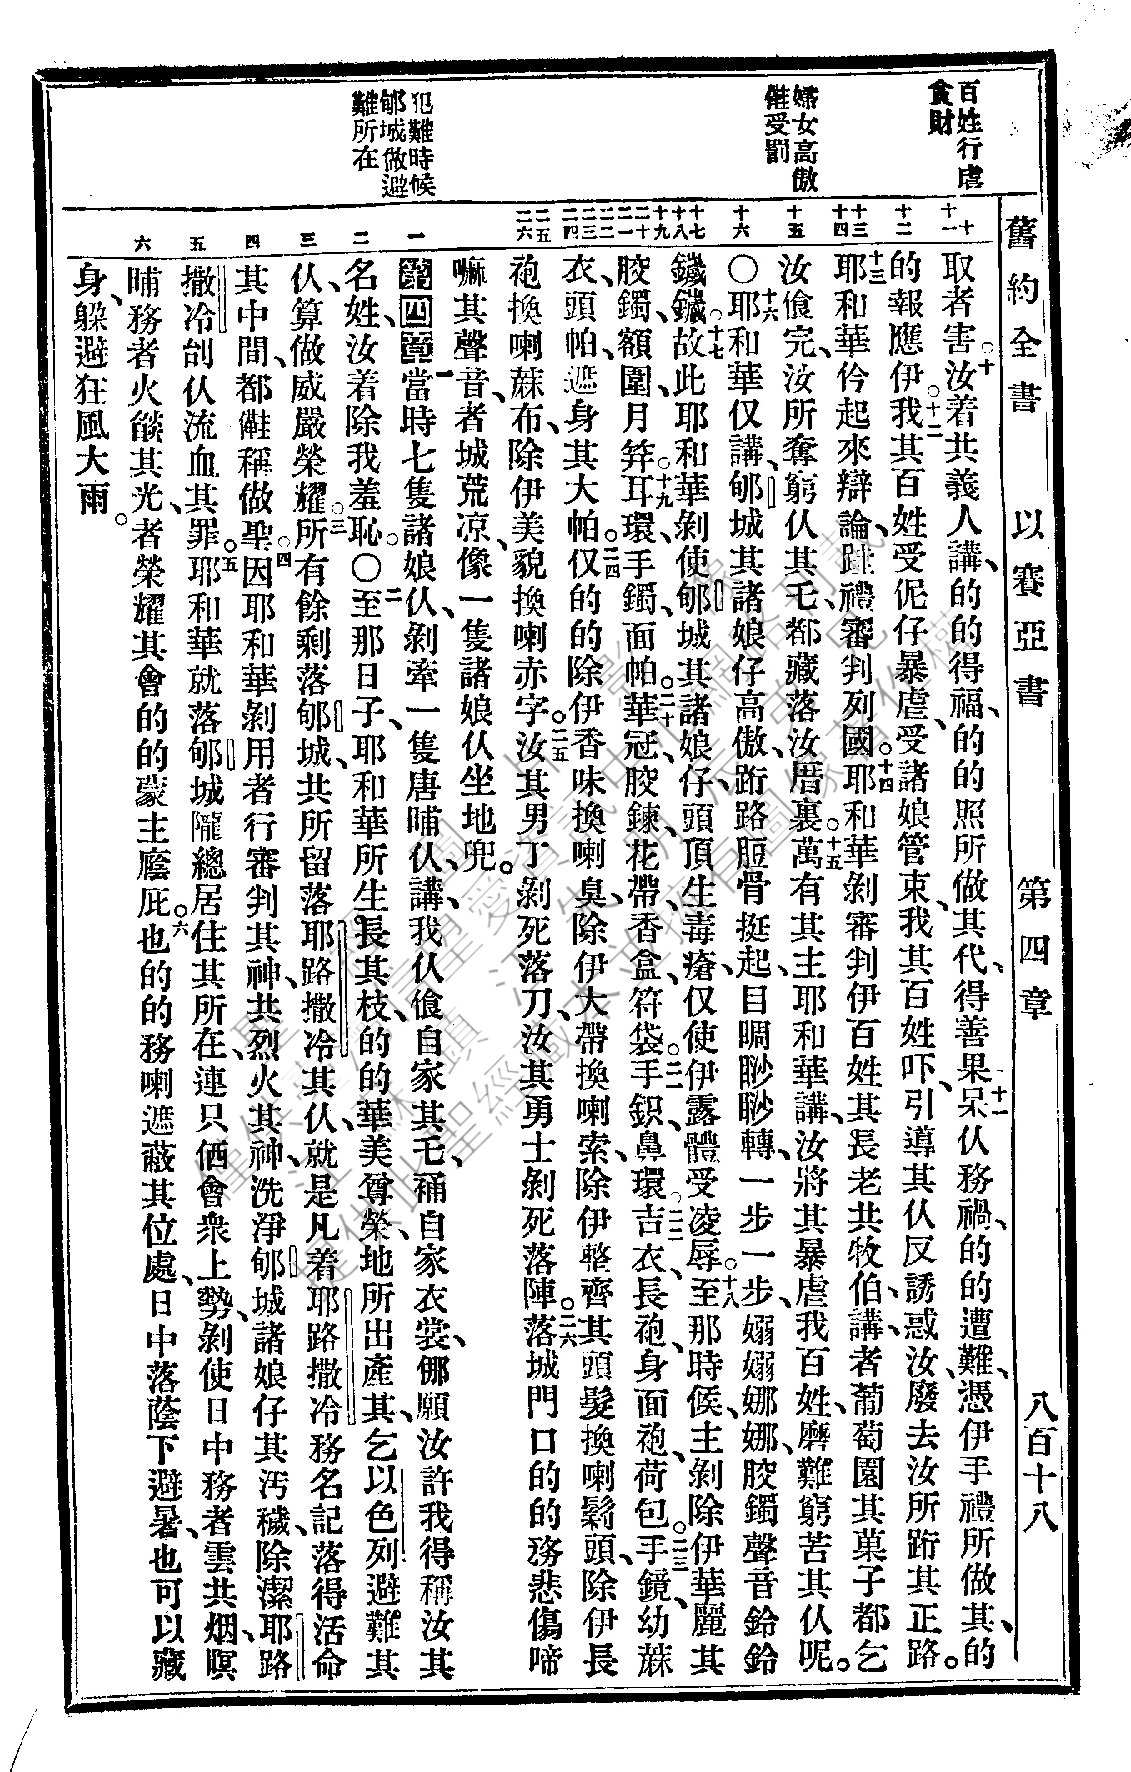 舊約全書　以賽亞書　第四章　八百十八
百姓行虐
貪財
婦女高傲
催受罰
犯難時候
郇城做避
難所在
取者害、汝着共義人講的的得福、的的照所做其代、得善果、呆仈務禍、的的遭難、憑伊手禮所做其、的
的報應伊、我其百姓受伲仔暴虐、受諸娘管束、我其百姓吓、引導其仈反誘惑汝、廢去汝所跡其正路。
耶和華仱起來辯論、跬禮審判列國。耶和華剝審判伊百姓其長老共牧伯、講、者葡萄園其菓子都乞
汝飧完、汝所奪窮仈其乇都藏落汝厝裏。萬有其主耶和華講、汝將其暴虐我百姓、磨難窮苦其仈呢。
〇耶和華仅講、郇城其諸娘仔高傲、跡路脰骨挺起、目睭眇眇轉、一步一步嫋嫋娜娜、骹鐲聲音鈴鈴
鐬鐬、故此耶和華剝使郇城其諸娘仔、頭頂生毒瘡、仅使伊露體受凌辱。至那時候、主剝除伊華麗其
骹鐲、額圍、月笄、耳環、手鐲、面帕、華冠、骹鍊、花帶、香盒、符袋、手鈬、鼻環、吉衣、長袍、身面袍、荷包、手鏡、幼蔴
衣、頭帕、遮身其大帕、仅的的除伊香味換喇臭、除伊大帶換喇索、除伊整齊其頭髮換喇鬎頭、除伊長
袍換喇蔴布、除伊美貌換喇赤字。汝其男丁剝死落刀、汝其勇士剝死落陣。落城門口的的務悲傷啼
嘛其聲音、者城荒凉、像一隻諸娘仈坐地兜。
第四章　當時七隻諸娘仈、剝牽一隻唐晡仈、講、我仈飧自家其乇、䄻自家衣裳、㑚願汝許我得稱汝其
名姓、汝着除我羞恥。〇至那日子、耶和華所生長其枝、的的華美尊榮、地所出產其、乞以色列避難其
仈、算做威嚴榮耀。所有餘剩落郇城、共所留落耶路撒冷其仈、就是凡着耶路撒冷務名記落得活命
其中間、都䡄稱做聖。因耶和華剝用者行審判其神、共烈火其神、洗淨郇城諸娘仔其汚穢、除潔耶路
撒冷刣仈流血其罪。耶和華就落郇城隴總居住其所在、連只㑚會衆上勢、剝使日中務者雲共烟、暝
晡務者火燄其光、者榮耀其會的的蒙主廕庇也。的的務喇遮蔽其位處、日中落蔭下避暑、也可以藏
身、躲避狂風大雨。